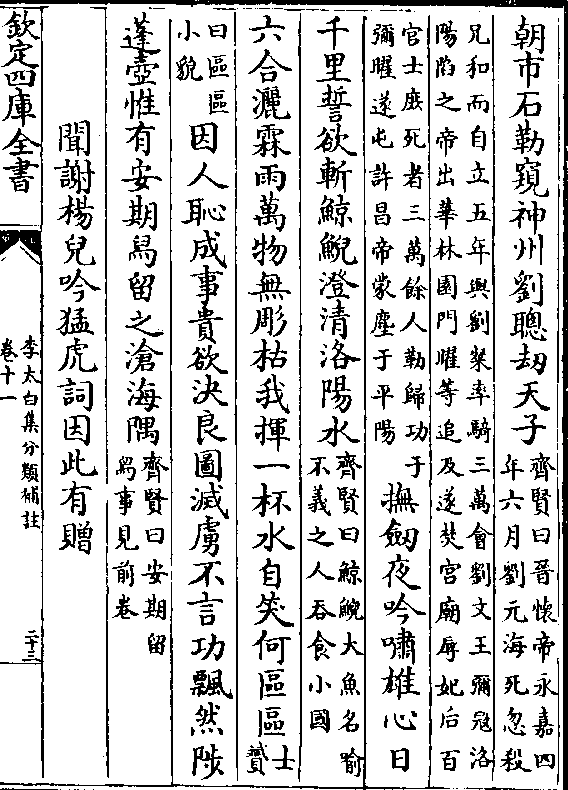 朝市石勒窺神州劉聰刼天子齊賢曰晉懷帝永嘉四
年六月劉元海死忽殺
兄和而自立五年與劉粲率騎三萬會劉文王彌冦洛
陽陷之帝出華林園門曜等追及遂焚宮廟辱妃后百
官士庻死者三萬餘人勒歸功于
彌曜遂屯許昌帝蒙塵于平陽
撫劒夜吟嘯雄心日
千里誓欲斬鯨鯢澄清洛陽水齊賢曰鯨鯢大魚名喻
不義之人吞食小國
六合灑霖雨萬物無彫枯我揮一杯水自笑何區區士
贇
曰區區
小貌
因人恥成事貴欲決良圖滅虜不言功飄然陟
蓬壺惟有安期舄留之滄海隅齊賢曰安期留
舄事見前卷
聞謝楊兒吟猛虎詞因此有贈
欽定四庫全書
李太白集分類補註
卷十一
二十三